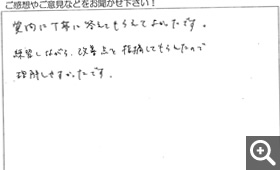 ご感想やご意見などをお聞かせ下さい！
質問に丁寧に答えてもらえてよかったです。
練習しながら、改善点を指摘してもらえたので
理解しやすかったです。